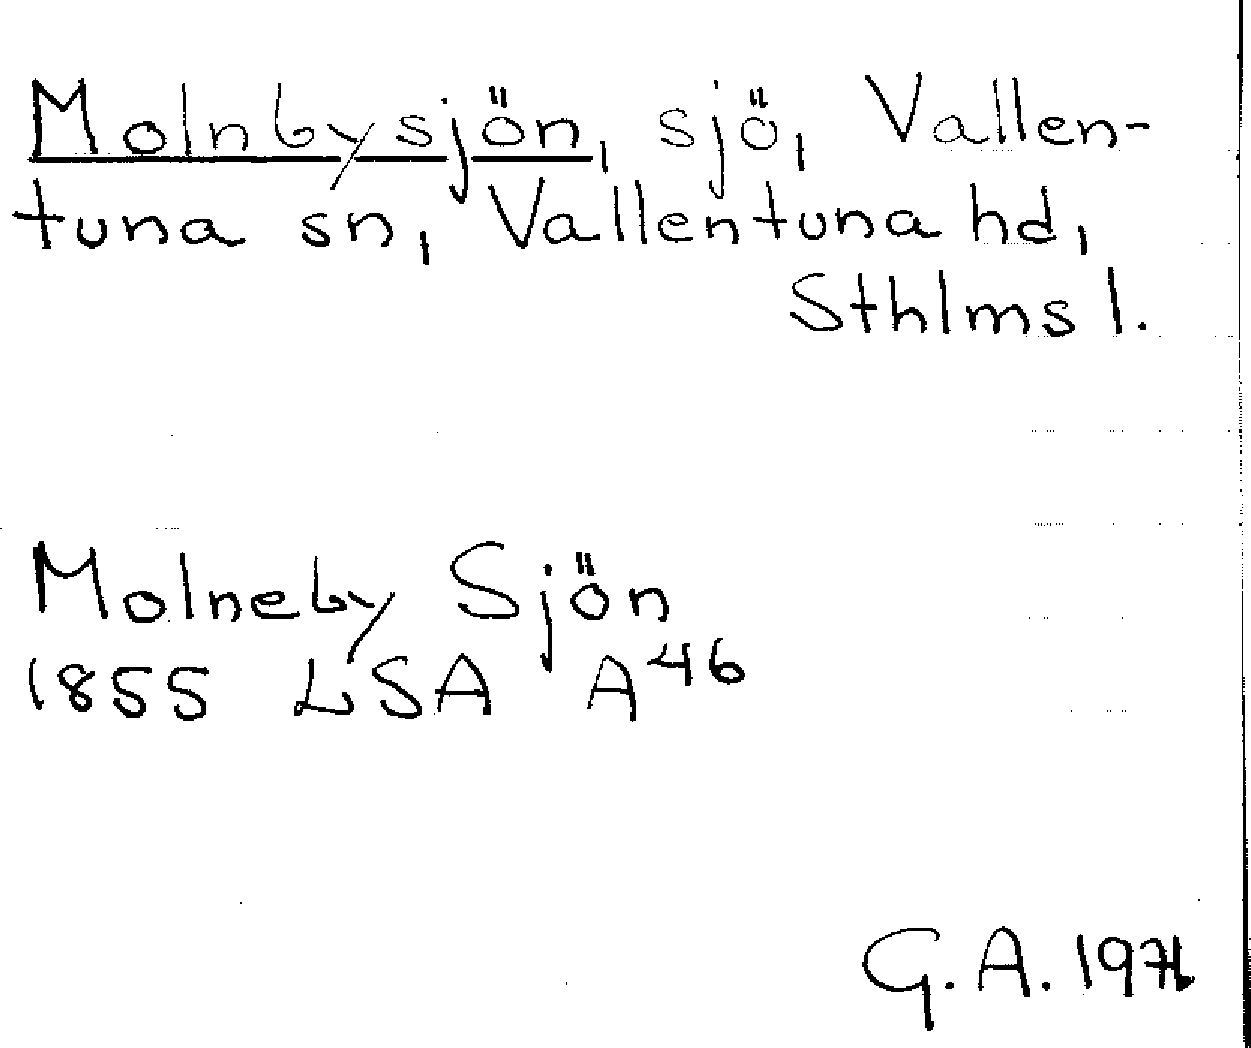 Molnbysjön, sjö, Vallen-
tuna sn, Vallentuna hd,
Sthlms l.
Molneby Sjön
1855 LSA A46
G.A.